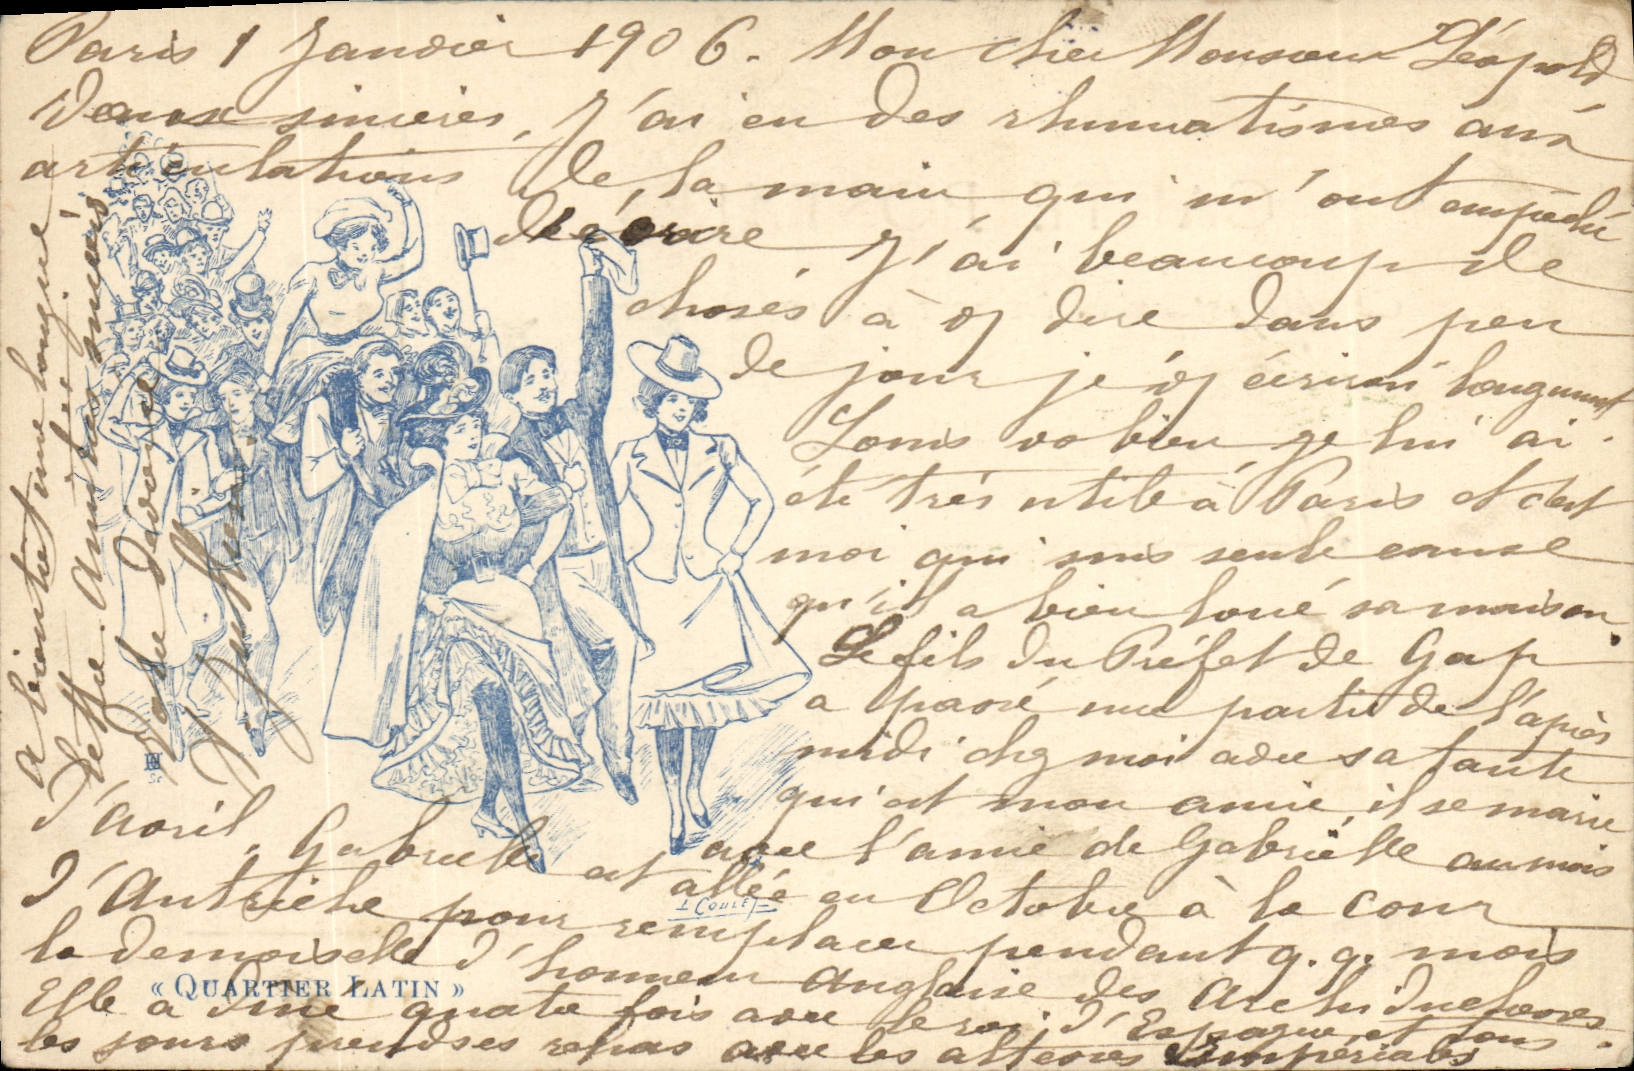 Paris 1 Janvier 1906. Mon cher Monsieur Léopold
Voeux sincères, J'ai eu des rhumatismes aux
articulations de la main qui m'ont empêché
d'écrire J'ai beaucoup de
choses à vs dire dans peu
de jour je vs écrirai longuement
Louis va bien je lui ai
été très utile à Paris et c'est
moi qui suis seule cause
qu'il a bien loué sa maison.
Le fils du Préfet de Gap
a passé une partie de l'après
midi chez moi avec sa tante
qui est mon amie, il se marie
avec l'amie de Gabriëlle au mois
d'Avril. Gabrielle est allée en Octobre à la cour
d'Autriche pour remplacer pendant q.q. mois
la demoiselle d'honneur Anglaise des Archiduchesses.
Elle a diné quatre fois avec le roi d'Espagne et tous
les jours prend ses repas avec les altesses Impériales
A bientôt une longue
lettre. Amitiés
Votre dévouée
L COULET
« QUARTIER LATIN »